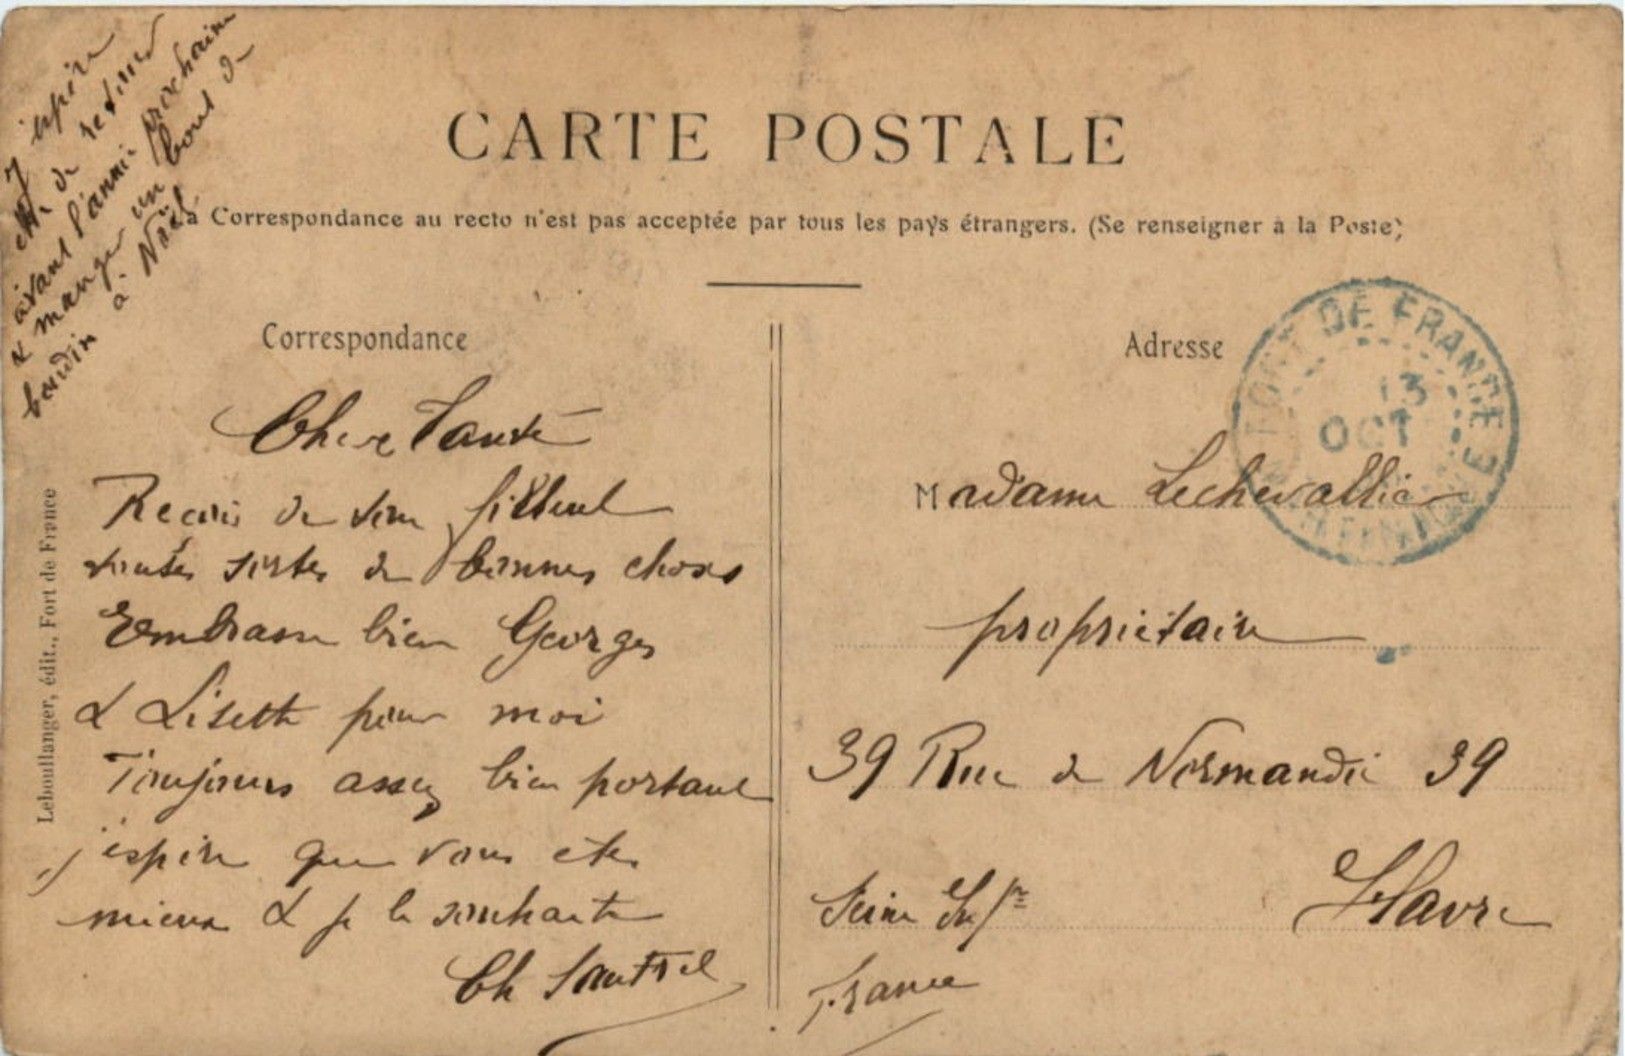 J'espère
être de retour
avant l'année prochaine
& manger un bout de
boudin à Noël
CARTE POSTALE
La Correspondance au recto n'est pas acceptée par tous les pays étrangers. (Se renseigner à la Poste)
Correspondance
Chère Tante
Reçois de ton filleul
toutes sortes de bonnes choses
Embrasse bien Georges
& Lisette pour moi
Toujours assez bien portant
j'espère que vous êtes
mieux & je le souhaite
Ch
Leboullanger, édit., Fort de France
Adresse
FORT DE FRANCE
13
OCT
MARTINIQUE
Madame Lechevallier
propriétaire
39 Rue de Normandie 39
Havre
Seine Infre
France